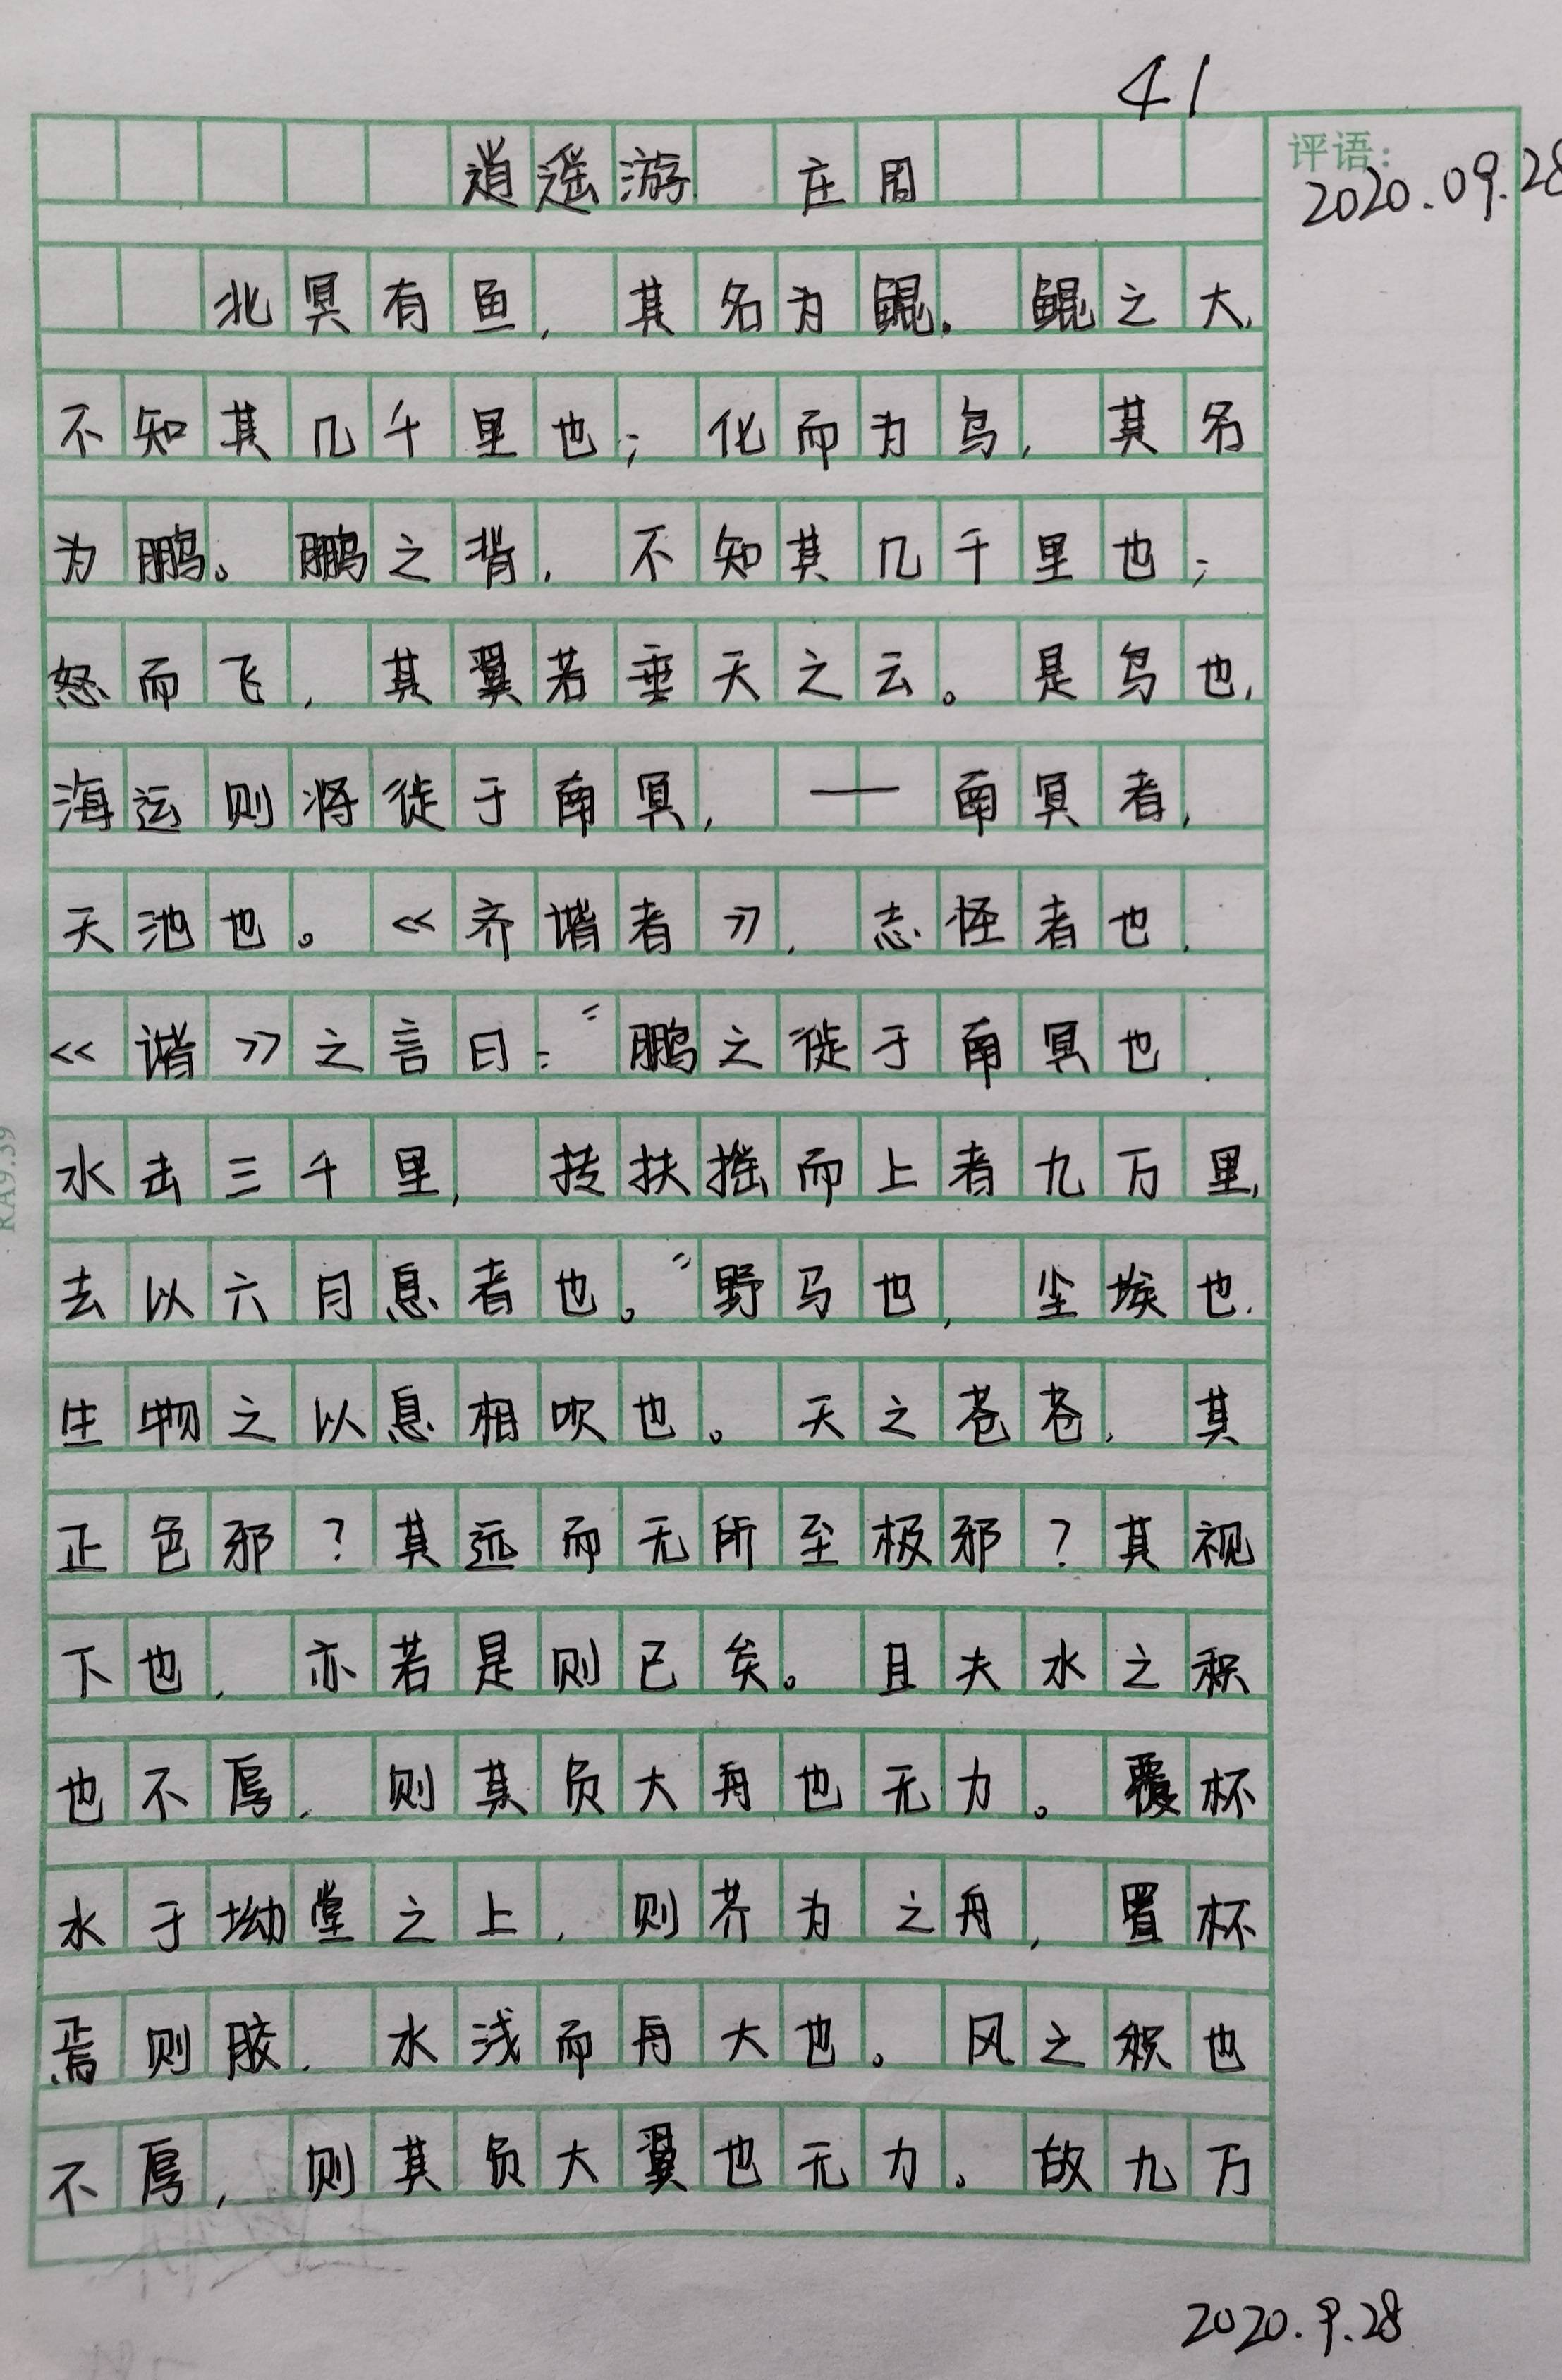 41
逍遥游 庄周
评语:
2020.09.28
北冥有鱼,其名为鲲。鲲之大,
不知其几千里也;化而为鸟,其名
为鹏。鹏之背,不知其几千里也;
怒而飞,其翼若垂天之云。是鸟也,
海运则将徙于南冥,——南冥者,
天池也。《齐谐者》,志怪者也,
《谐》之言曰:“鹏之徙于南冥也,
水击三千里,抟扶摇而上者九万里,
去以六月息者也。”野马也,尘埃也,
生物之以息相吹也。天之苍苍,其
正色邪?其远而无所至极邪?其视
下也,亦若是则已矣。且夫水之积
也不厚,则其负大舟也无力。覆杯
水于坳堂之上,则芥为之舟,置杯
焉则胶,水浅而舟大也。风之积也
不厚,则其负大翼也无力。故九万
RA9.39
2020.9.28